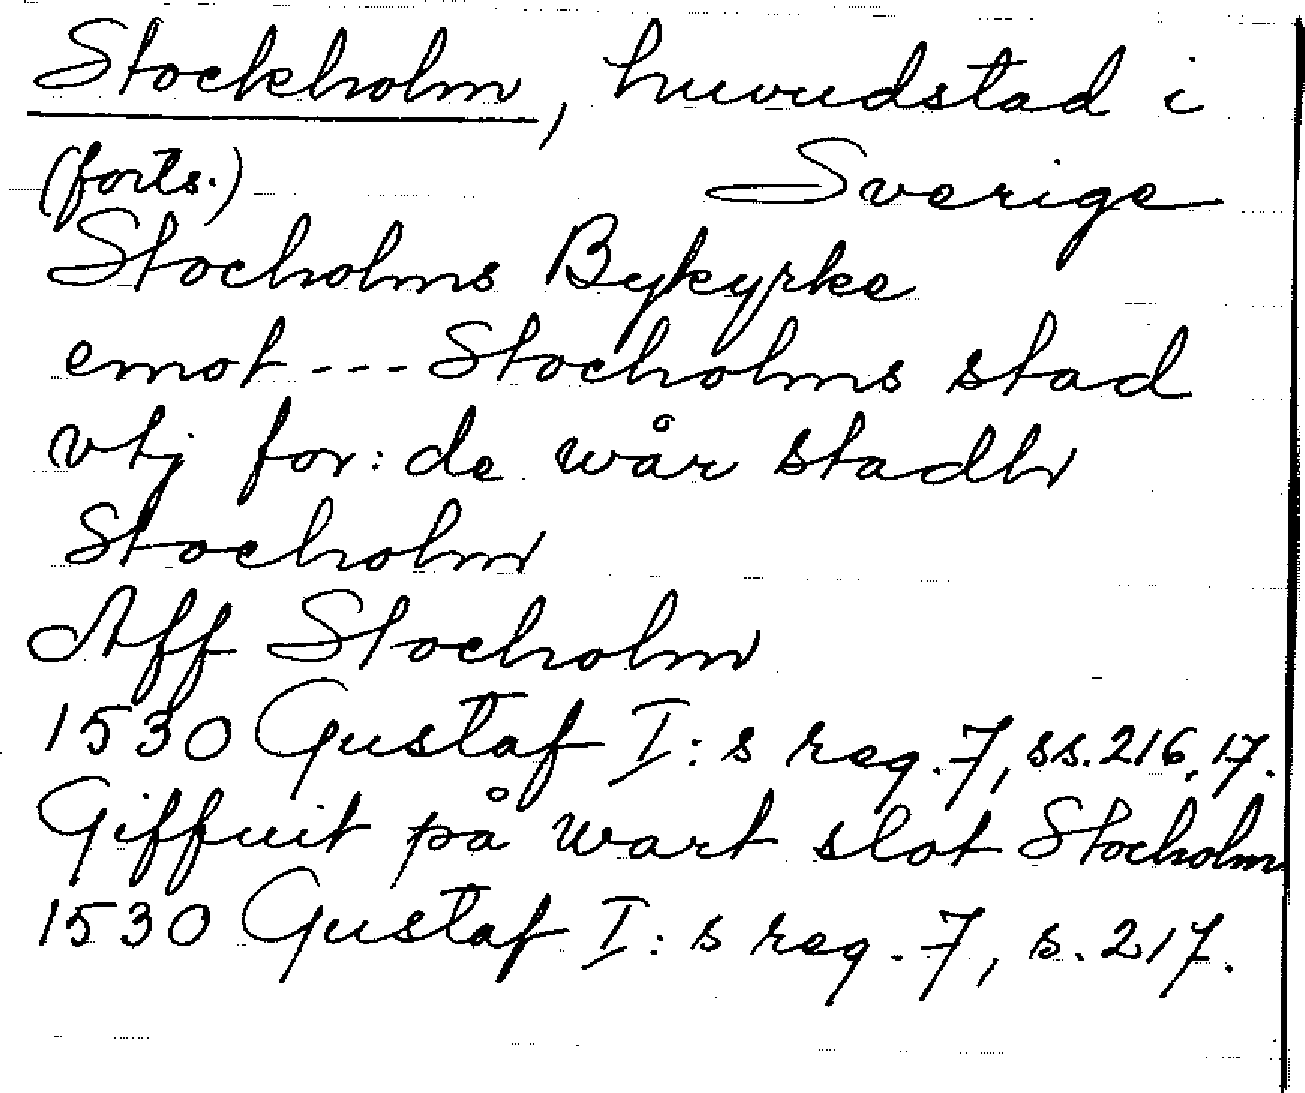 Stockholm, huvudstad i
(forts.) Sverige
Stocholms Bykyrke
emot --- Stocholms stad
vtj for: de wår stadh
Stocholm
Aff Stocholm
1530 Gustaf I:s reg. 7, ss. 216, 17.
Giffuit på wart slot Stocholm
1530 Gustaf I:s reg. 7, s. 217.